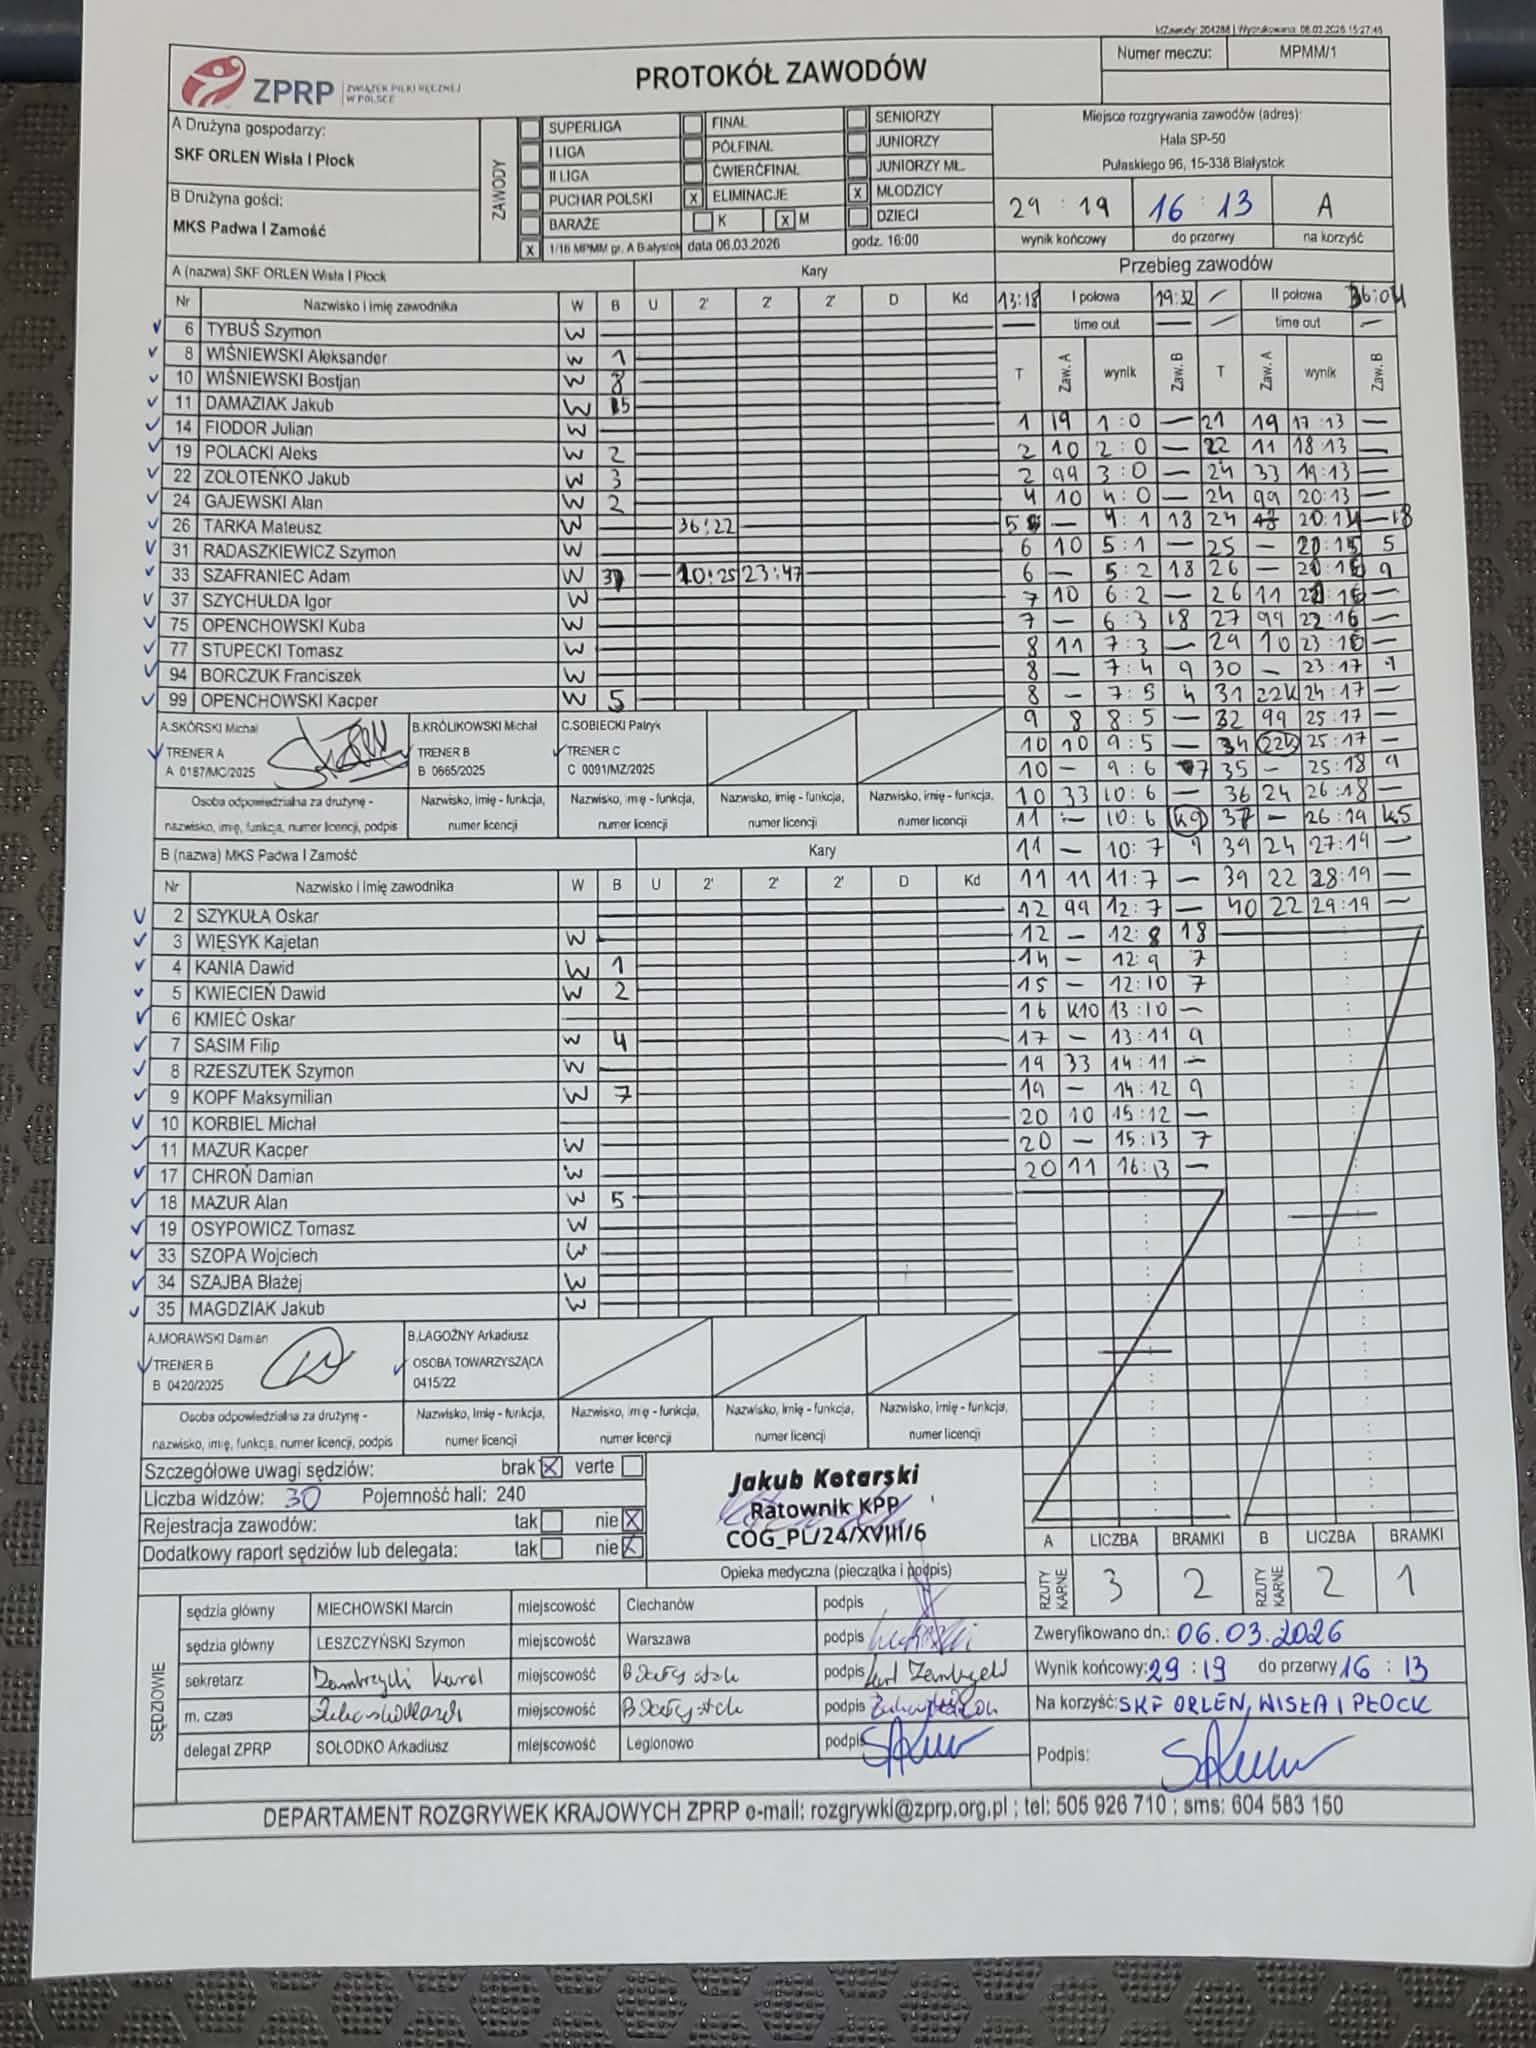 IdZawody: 204288 | Wydrukowano: 06.03.2026 15:27:45
ZPRP ZWIĄZEK PIŁKI RĘCZNEJ W POLSCE
PROTOKÓŁ ZAWODÓW
Numer meczu: MPMM/1
A Drużyna gospodarzy:
SKF ORLEN Wisła I Płock
B Drużyna gości:
MKS Padwa I Zamość
ZAWODY
SUPERLIGA FINAŁ SENIORZY
I LIGA PÓŁFINAŁ JUNIORZY
II LIGA ĆWIERĆFINAŁ JUNIORZY MŁ.
PUCHAR POLSKI x ELIMINACJE x MŁODZICY
BARAŻE K x M DZIECI
x 1/16 MPMM gr. A Białystok data 06.03.2026 godz. 16:00
Miejsce rozgrywania zawodów (adres):
Hala SP-50
Pułaskiego 96, 15-338 Białystok
29 : 19 16 : 13 A
wynik końcowy do przerwy na korzyść
A (nazwa) SKF ORLEN Wisła I Płock Kary
Nr Nazwisko i imię zawodnika W B U 2' 2' 2' D Kd
6 TYBUŚ Szymon W
8 WIŚNIEWSKI Aleksander W 1
10 WIŚNIEWSKI Bostjan W 8
11 DAMAZIAK Jakub W 5
14 FIODOR Julian W
19 POLACKI Aleks W 2
22 ZOŁOTEŃKO Jakub W 3
24 GAJEWSKI Alan W 2
26 TARKA Mateusz W 36:22
31 RADASZKIEWICZ Szymon W
33 SZAFRANIEC Adam W 3 10:25 23:47
37 SZYCHULDA Igor W
75 OPENCHOWSKI Kuba W
77 STUPECKI Tomasz W
94 BORCZUK Franciszek W
99 OPENCHOWSKI Kacper W 5
A.SKÓRSKI Michał B.KRÓLIKOWSKI Michał C.SOBIECKI Patryk
TRENER A TRENER B TRENER C
A 0187/MC/2025 B 0665/2025 C 0091/MZ/2025
Osoba odpowiedzialna za drużynę - Nazwisko, imię - funkcja, Nazwisko, imię - funkcja, Nazwisko, imię - funkcja, Nazwisko, imię - funkcja,
nazwisko, imię, funkcja, numer licencji, podpis numer licencji numer licencji numer licencji numer licencji
B (nazwa) MKS Padwa I Zamość Kary
Nr Nazwisko i imię zawodnika W B U 2' 2' 2' D Kd
2 SZYKUŁA Oskar
3 WIĘSYK Kajetan W
4 KANIA Dawid W 1
5 KWIECIEŃ Dawid W 2
6 KMIEĆ Oskar
7 SASIM Filip W 4
8 RZESZUTEK Szymon W
9 KOPF Maksymilian W 7
10 KORBIEL Michał
11 MAZUR Kacper W
17 CHROŃ Damian W
18 MAZUR Alan W 5
19 OSYPOWICZ Tomasz W
33 SZOPA Wojciech W
34 SZAJBA Błażej W
35 MAGDZIAK Jakub W
A.MORAWSKI Damian B.ŁAGOŹNY Arkadiusz
TRENER B OSOBA TOWARZYSZĄCA
B 0420/2025 0415/22
Osoba odpowiedzialna za drużynę - Nazwisko, imię - funkcja, Nazwisko, imię - funkcja, Nazwisko, imię - funkcja, Nazwisko, imię - funkcja,
nazwisko, imię, funkcja, numer licencji, podpis numer licencji numer licencji numer licencji numer licencji
Przebieg zawodów
13:18 I połowa 19:32 — II połowa 36:04
— time out — — time out —
T Zaw. A wynik Zaw. B T Zaw. A wynik Zaw. B
1 19 1:0 — 21 19 17:13 —
2 10 2:0 — 22 11 18:13 —
2 99 3:0 — 24 33 19:13 —
4 10 4:0 — 24 99 20:13 —
5 — 4:1 18 24 20:14 18
6 10 5:1 — 25 — 20:15 5
6 — 5:2 18 26 — 20:16 9
7 10 6:2 — 26 11 21:16 —
7 — 6:3 18 27 99 22:16 —
8 11 7:3 — 29 10 23:16 —
8 — 7:4 9 30 — 23:17 9
8 — 7:5 4 31 22K 24:17 —
9 8 8:5 — 32 99 25:17 —
10 10 9:5 — 34 22K 25:17 —
10 — 9:6 7 35 — 25:18 9
10 33 10:6 — 36 24 26:18 —
11 — 10:6 K9 37 — 26:19 K5
11 — 10:7 9 39 24 27:19 —
11 11 11:7 — 39 22 28:19 —
12 99 12:7 — 40 22 29:19 —
12 — 12:8 18
14 — 12:9 7
15 — 12:10 7
16 K10 13:10 —
17 — 13:11 9
19 33 14:11 —
19 — 14:12 9
20 10 15:12 —
20 — 15:13 7
20 11 16:13 —
A LICZBA BRAMKI B LICZBA BRAMKI
RZUTY KARNE 3 2 RZUTY KARNE 2 1
Szczegółowe uwagi sędziów: brak X verte
Liczba widzów: 30 Pojemność hali: 240
Rejestracja zawodów: tak nie X
Dodatkowy raport sędziów lub delegata: tak nie X
Jakub Kotarski
Ratownik KPP
COG_PL/24/XVIII/6
Opieka medyczna (pieczątka i podpis)
SĘDZIOWIE
sędzia główny MIECHOWSKI Marcin miejscowość Ciechanów podpis
sędzia główny LESZCZYŃSKI Szymon miejscowość Warszawa podpis
sekretarz Karol miejscowość Białystok podpis
m. czas miejscowość Białystok podpis
delegat ZPRP SOŁODKO Arkadiusz miejscowość Legionowo podpis
Zweryfikowano dn.: 06.03.2026
Wynik końcowy: 29 : 19 do przerwy 16 : 13
Na korzyść: SKF ORLEN WISŁA I PŁOCK
Podpis:
DEPARTAMENT ROZGRYWEK KRAJOWYCH ZPRP e-mail: rozgrywki@zprp.org.pl ; tel: 505 926 710 ; sms: 604 583 150